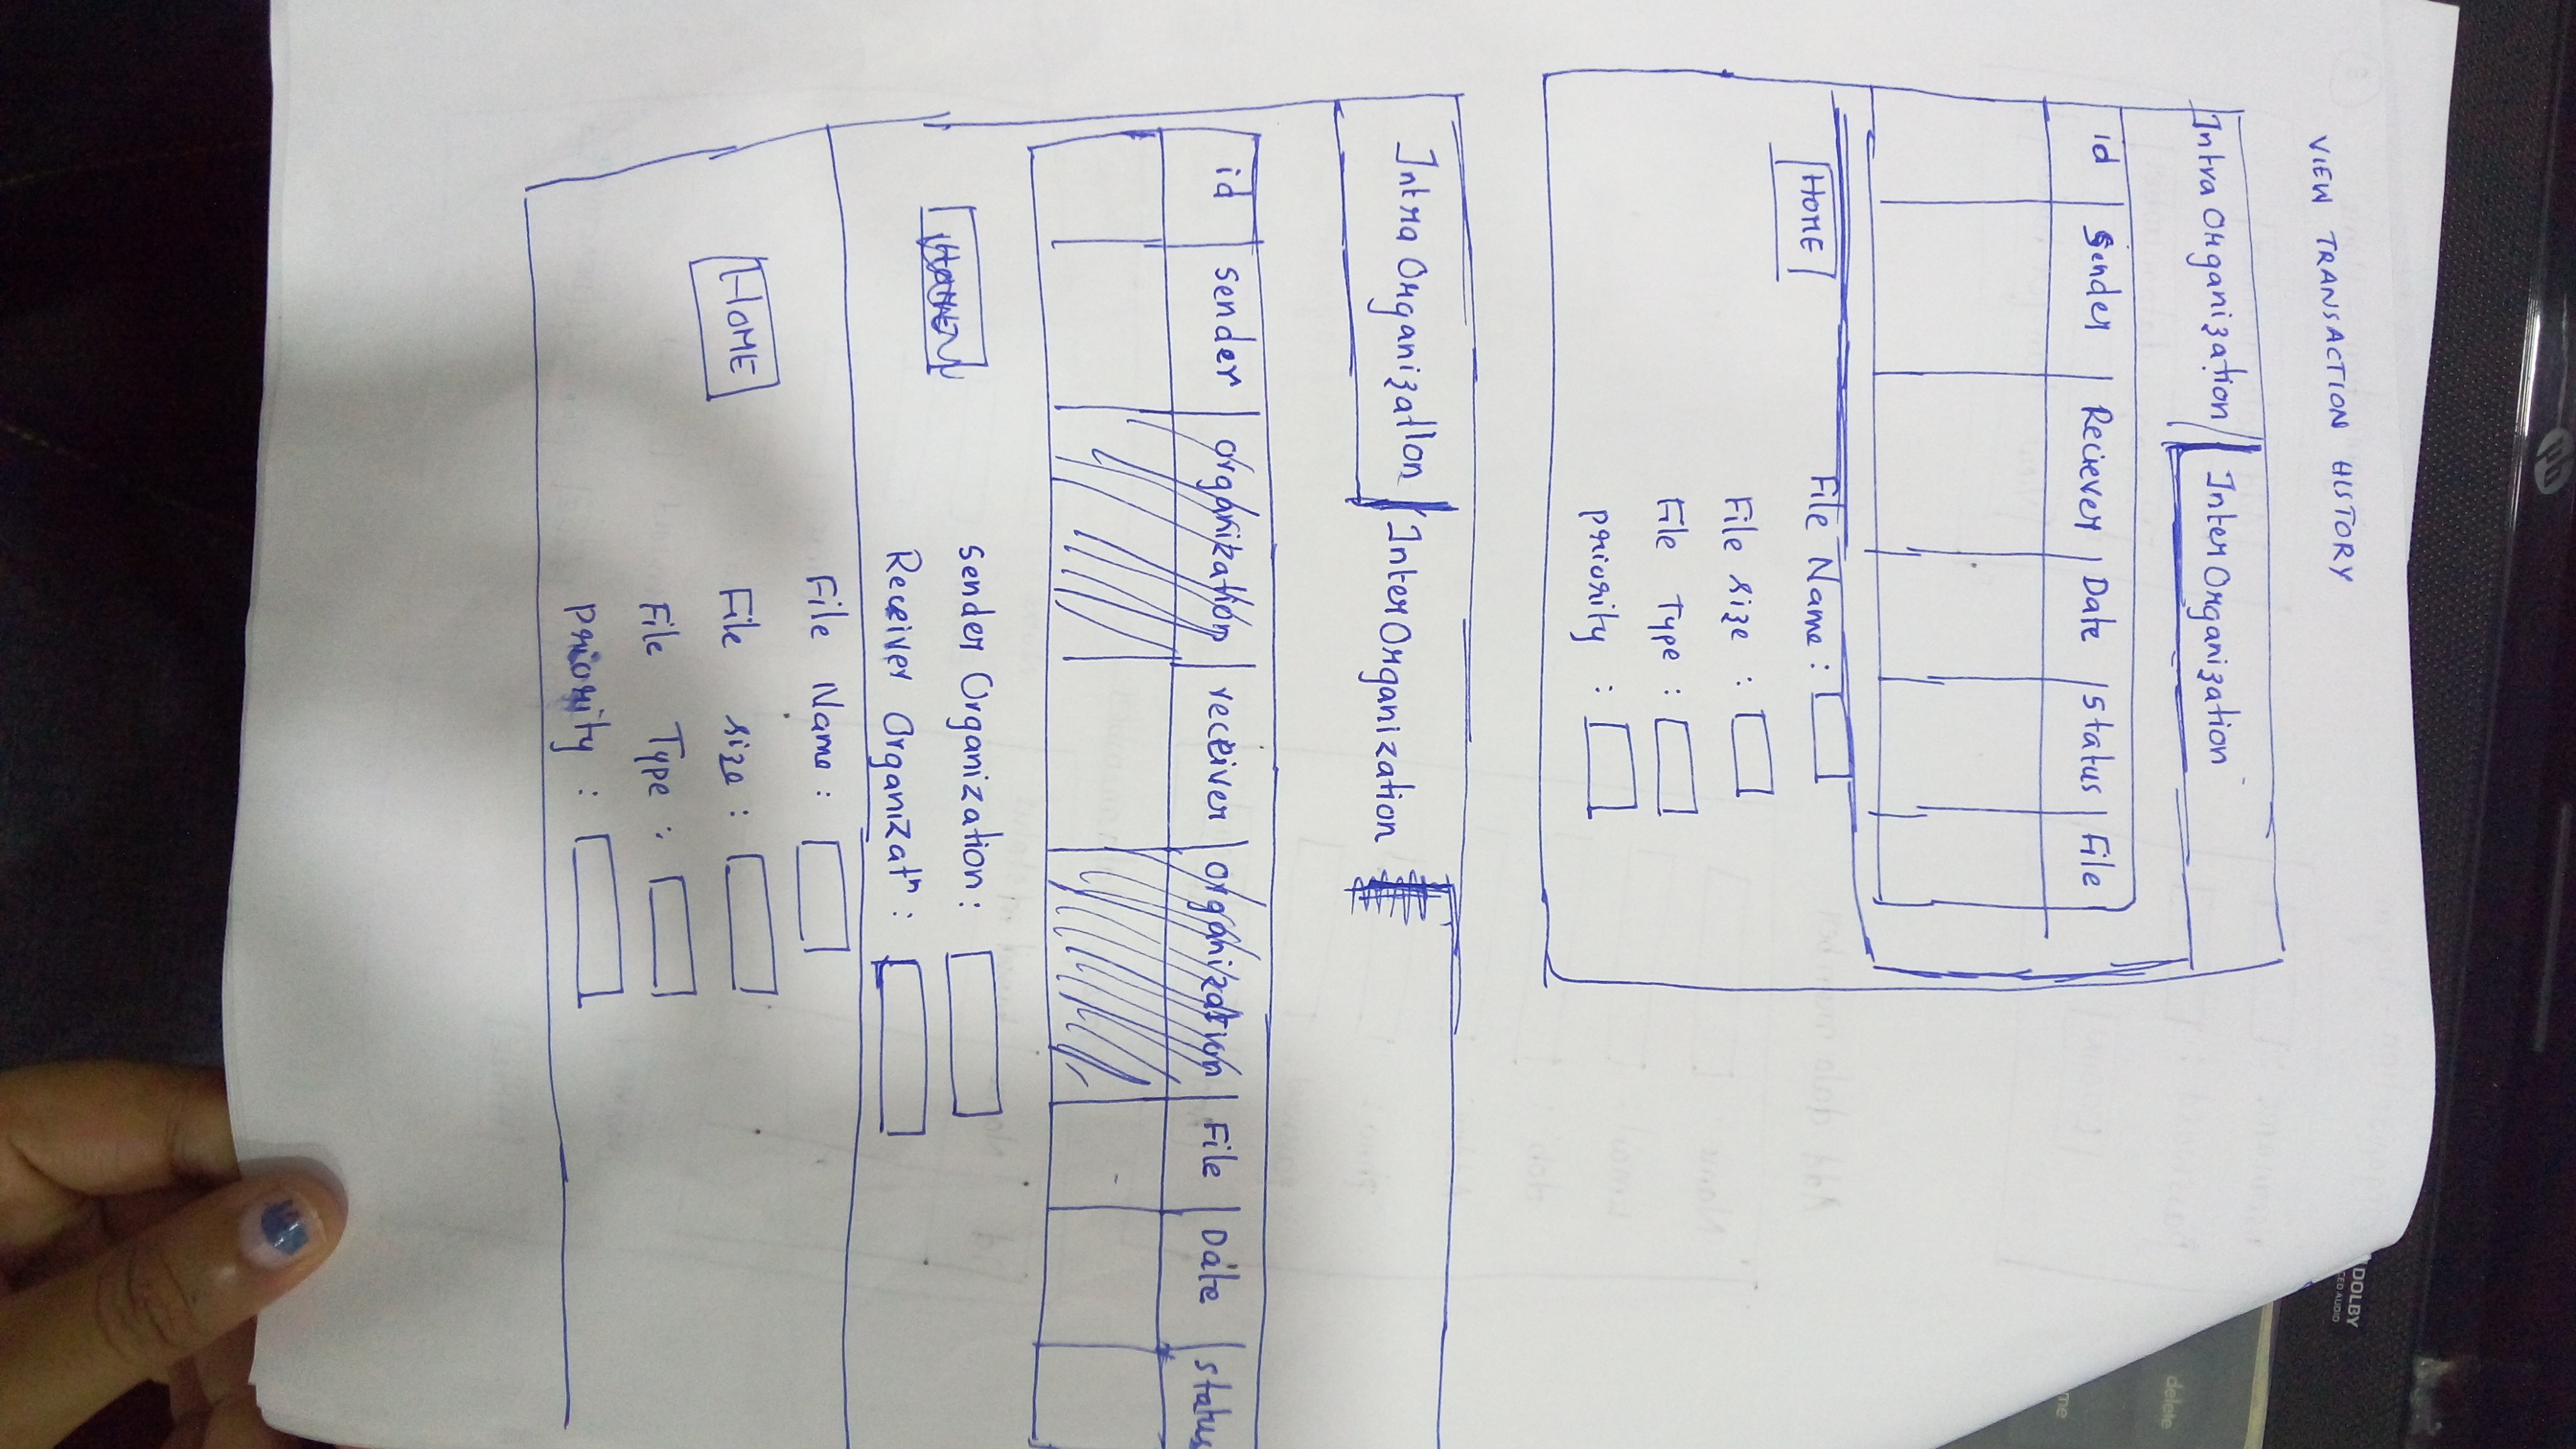 VIEW TRANSACTION HISTORY
Intra Organization Inter Organization
id Sender Reciever Date Status File
HOME
File Name :
File size :
File Type :
priority :
Intra Organization Inter Organization
id sender organization receiver organization File Date status
sender Organization :
Receiver Organizatn :
HOME
File Name :
File size :
File Type :
priority :
DOLBY
delete